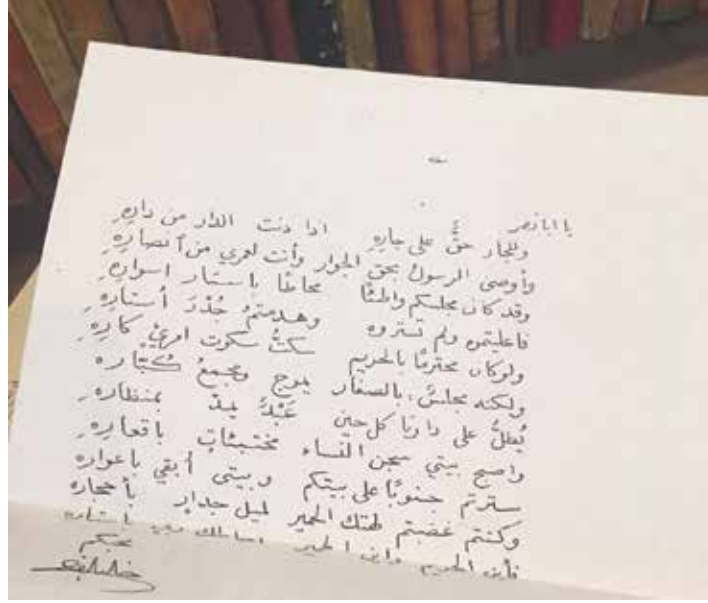 يا أبا نصر
وللجار حقٌّ على جارِهِ اذا دنت الدار من دارِهِ
وأوصى الرسولُ بحق الجوار وأنت لعمري من أنصارِهِ
وقد كان مجلسكم واطئًا محاطًا باستار اسوارِهِ
فاعليتموه ولم تستروه وهدمتمُ جُدْرَ أستارِهِ
ولو كان محترمًا بالحريم سكتُّ سكوت امرئٍ كارِهِ
ولكنه مجلسٌ بالصغار يموج ومجمعُ كُبّاره
يُطلُّ على دارنا كل حين يمدّ بمنظاره
واصبح بيتي سجن النساء مختبئاتٍ باقعارِهِ
سترتم جنوبًا على بيتكم وبيتي أبقي باعواره
وكنتم غضبتم لهتك الحمير لميل جدارٍ بأحجاره
فأين الحريم وأين الحمير
محبكم